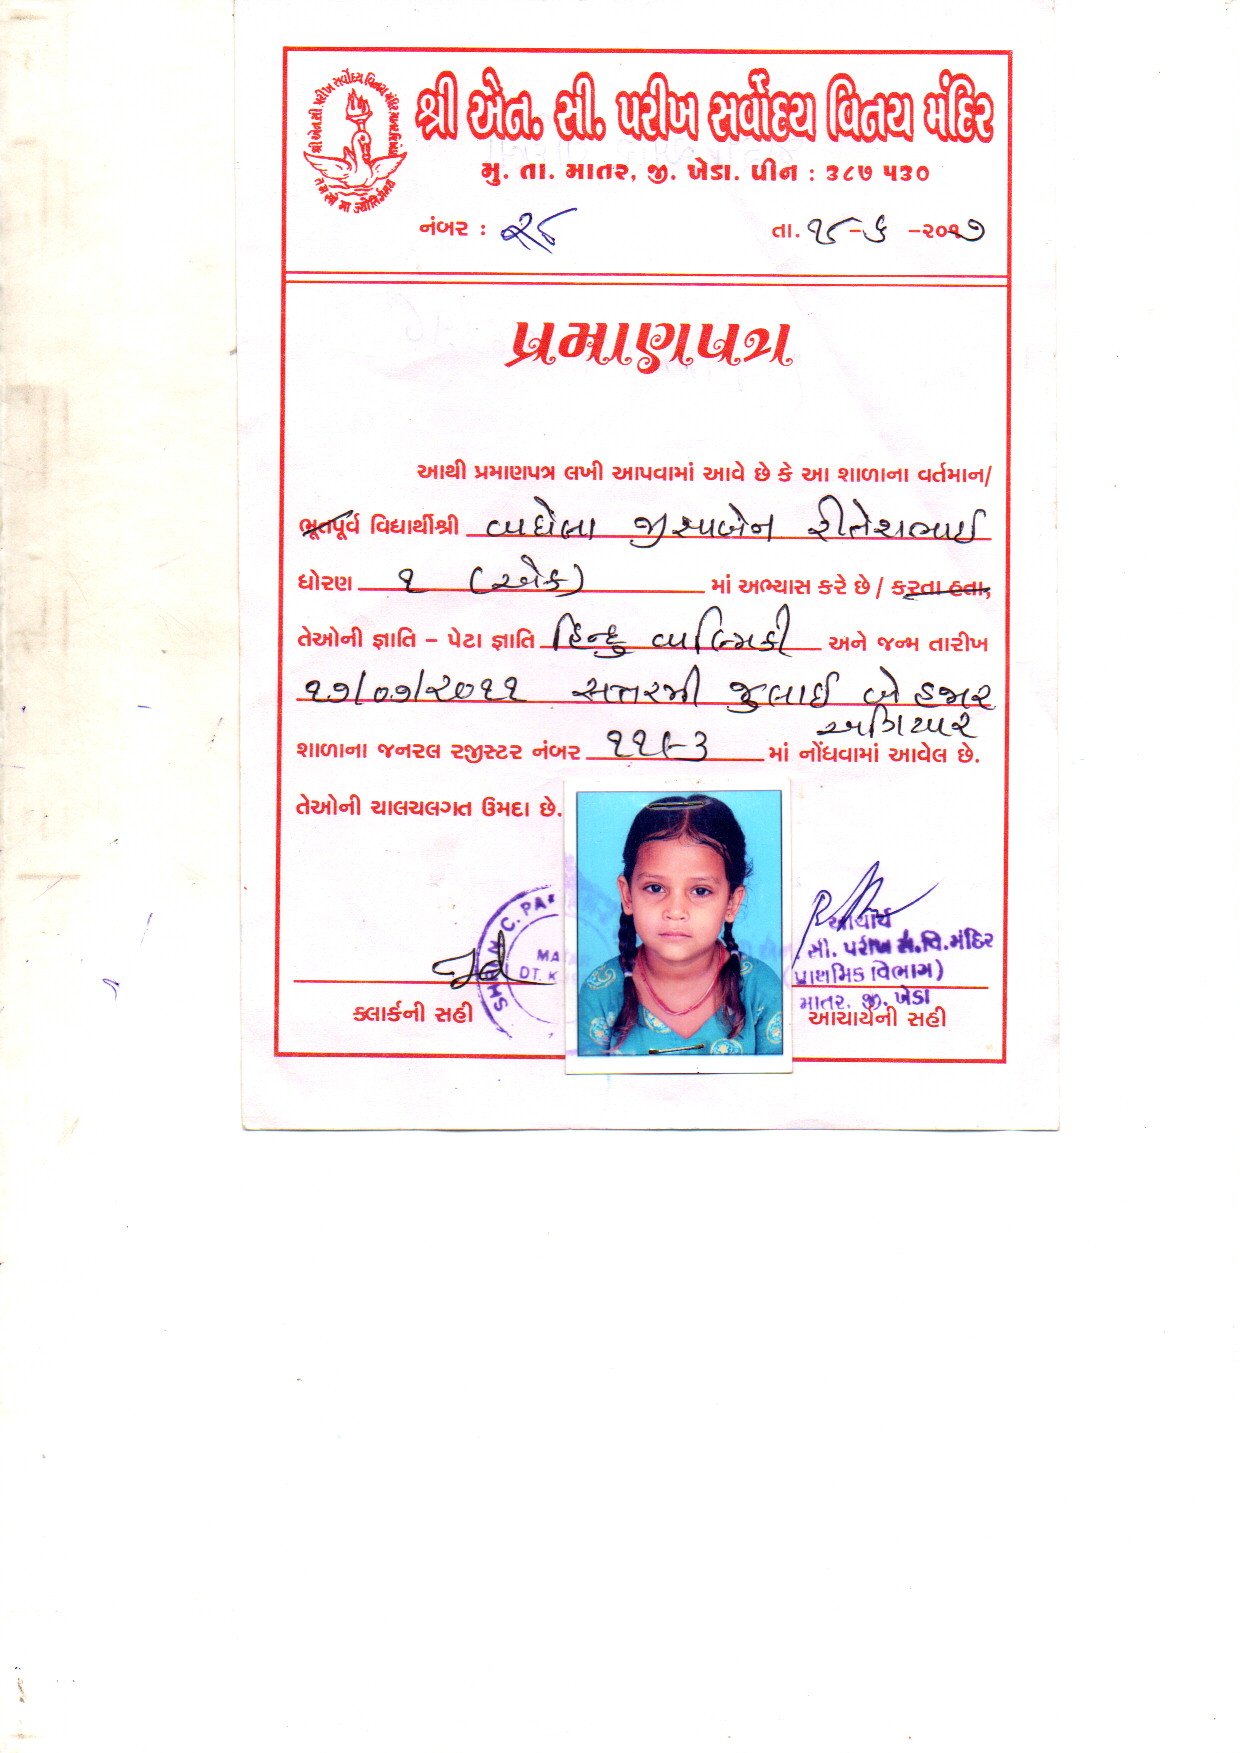 શ્રી એન. સી. પરીખ સર્વોદય વિનય મંદિર
મુ. તા. માતર, જી. ખેડા. પીન : ૩૮૭ ૫૩૦
નંબર : ૨૮ તા. ૧૮-૬ -૨૦૧૭
પ્રમાણપત્ર
આથી પ્રમાણપત્ર લખી આપવામાં આવે છે કે આ શાળાના વર્તમાન/
ભૂતપૂર્વ વિદ્યાર્થીશ્રી વાઘેલા જીસાબેન રીતેશભાઈ
ધોરણ ૧ (એક) માં અભ્યાસ કરે છે / કરતા હતા,
તેઓની જ્ઞાતિ – પેટા જ્ઞાતિ હિન્દુ વાલ્મિકી અને જન્મ તારીખ
૧૭/૦૭/૨૦૧૧ સત્તરમી જુલાઈ બે હજાર
અગિયાર
શાળાના જનરલ રજીસ્ટર નંબર ૧૧૯૩ માં નોંધવામાં આવેલ છે.
તેઓની ચાલચલગત ઉમદા છે.
SHRI N. C. PA
MA
DT. K
આચાર્ય
સી. પરીખ સ.વિ.મંદિર
પ્રાથમિક વિભાગ)
માતર. જી. ખેડા
ક્લાર્કની સહી આચાર્યની સહી